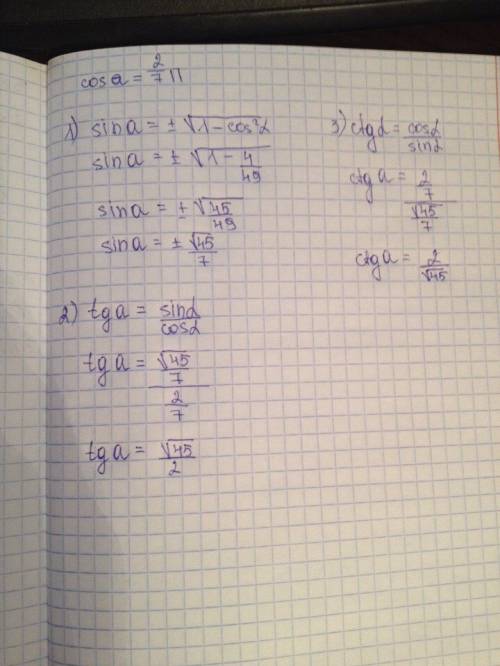 cos a = 2/7 П
1) sin a = ± √1 - cos²α
sin a = ± √1 - 4/49
sin a = ± √45/49
sin a = ± √45/7
2) tg a = sinα/cosα
tg a = √45/7 / 2/7
tg a = √45/2
3) ctg α = cosα/sinα
ctg a = 2/7 / √45/7
ctg a = 2/√45